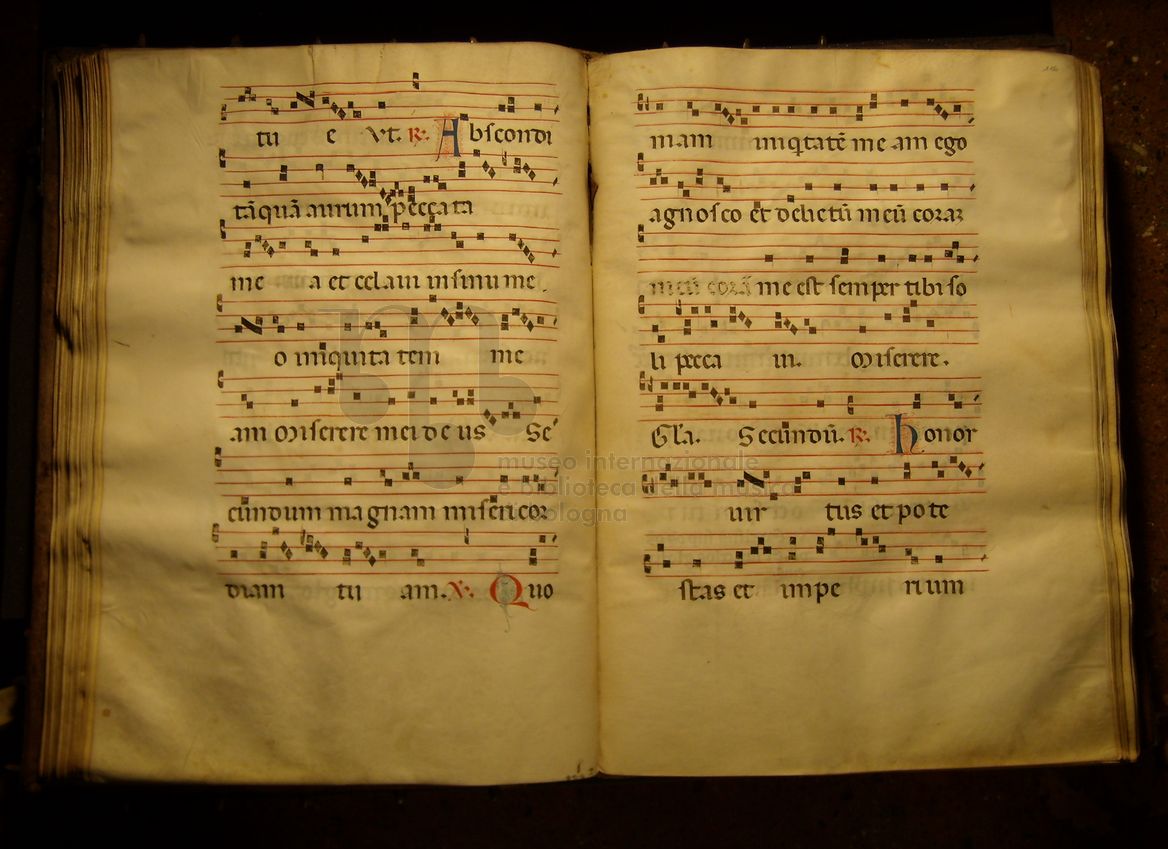 tu e vt. R. Abscondi
tāquā aurum peccata
me a et celaui in sinu me.
o iniquita tem me
am Miserere mei de us Se
cundum magnam misericor
diam tu am. V. Quo
mam iniqtatē me am ego
agnosco et delictū meū coraz
meū corā me est semper tibi so
li pecca ui. Miserere.
Gl'a. Secundū. R. Honor
uir tus et pote
stas et impe rium
museo internazionale
e biblioteca della musica
di bologna